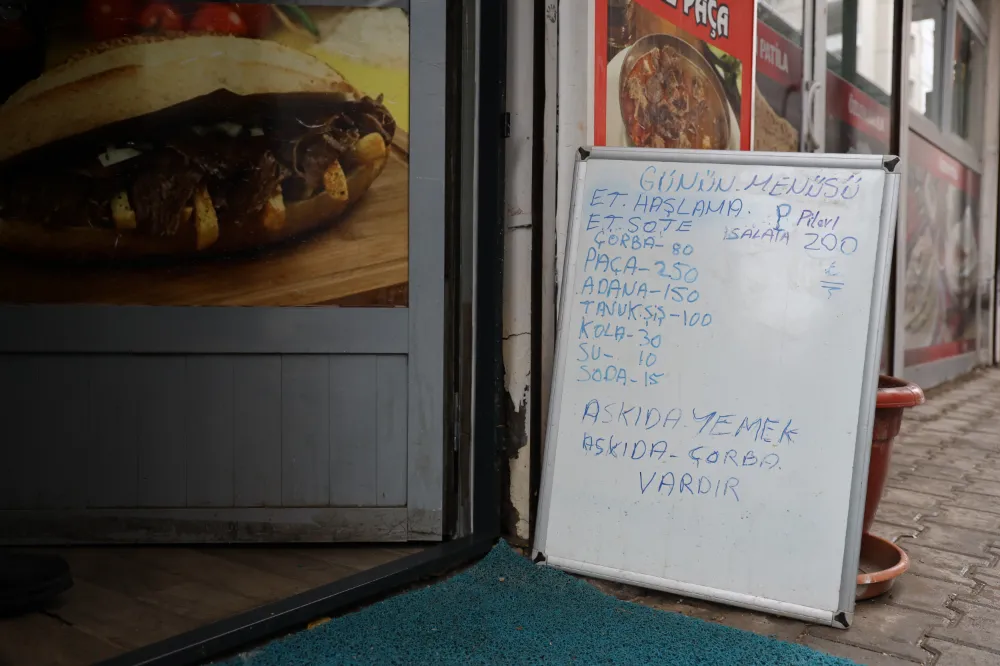 PAÇA
PATİLA
GÜNÜN. MENÜSÜ
ET. HAŞLAMA. P Pilavl
ET. SOTE SALATA 200
ÇORBA- 80
PAÇA-250
ADANA-150
TAVUK ŞİŞ-100
KOLA-30
SU- 10
SODA-15
ASKIDA. YEMEK
ASKIDA- ÇORBA.
VARDIR